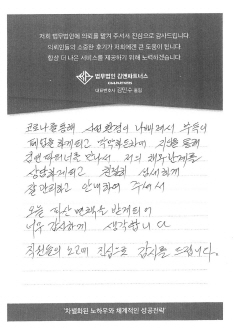 저희 법무법인에 의뢰를 맡겨 주셔서 진심으로 감사드립니다.
의뢰인들의 소중한 후기가 저희에겐 큰 도움이 됩니다.
항상 더 나은 서비스를 제공하기 위해 노력하겠습니다.
법무법인 김앤파트너스
대표변호사 김민수 올림
코로나를 통해 사업환경이 나빠져서 부득이
폐업을 하게되고 막막하던차에 지인을 통해
김앤파트너스를 만나서 저의 채무관계를
상담하게되고 친절히 상세하게
잘 관리하고 안내하여 주셔서
오늘 파산 면책을 받게되어
너무 감사하게 생각합니다
직원분의 노고에 진심으로 감사를 드립니다.
'차별화된 노하우와 체계적인 성공전략'